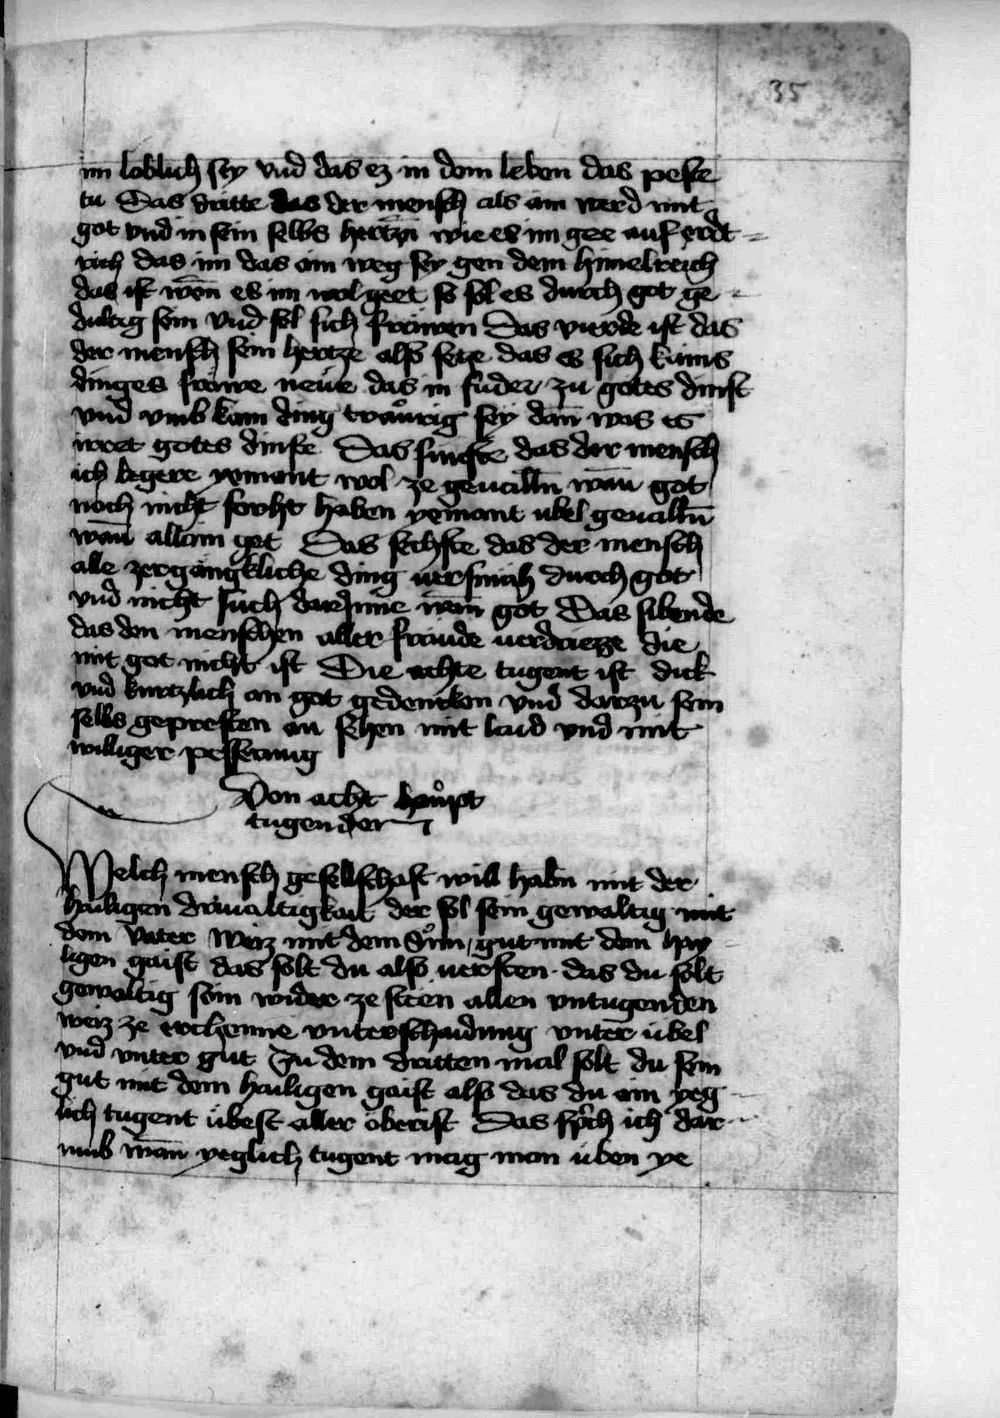 35
im loblich sey vnd das ez in dem leben das peste
tu Das dritte das der mensch als ain werd mit
got vnd in sein selbs hertzn̄ wie es im gee auf erdt=
rich das im das ain weg sey gen dem himelreich
das ist wen̄ es im wol geet so sol es durch got ge=
dultig sein vnd sol sich fräwen Das vierde ist das
der mensch sein hertze also setze das es sich kains
dinges fräwe neüe das in fuder zu gotes dinst
vnd vmb kain ding traurig sey dan̄ was es
irret gotes dinste Das funfte das der mensch
icht begere yemant wol ze geuallen̄ wan̄ got
noch nicht forcht haben yemant übel geuallen̄
wan̄ allain got Das sechste das der mensch
alle zergängkliche ding versmäh durch got
vnd nicht such darjnne wan̄ got Das sibende
das den menschen aller fräude verdrieze die
mit got nicht ist Die achte tugent ist dick
vnd kurtzlich an got gedencken vnd darzu sein
selbs gepresten an sehen mit laid vnd mit
williger pesserung
Von acht haupt
tugenden
Welch mensch gesellschaft will habn̄ mit der
hailigen driualtigkait der sol sein gewaltig mit
dem vater weiz mit dem sun / gut mit dem hay=
ligen gaist das solt du also versten das du solt
gewaltig sein wider ze steen allen vntugenden
weiz ze erchenne vnterschaidung vnter übel
vnd vnter gut Zu dem dritten mal solt du sein
gut mit dem hailigen gaist also das du ain yeg=
lich tugent übest aller öberist Das sprich ich dar=
vmb wan̄ yeglich tugent mag man üben ye